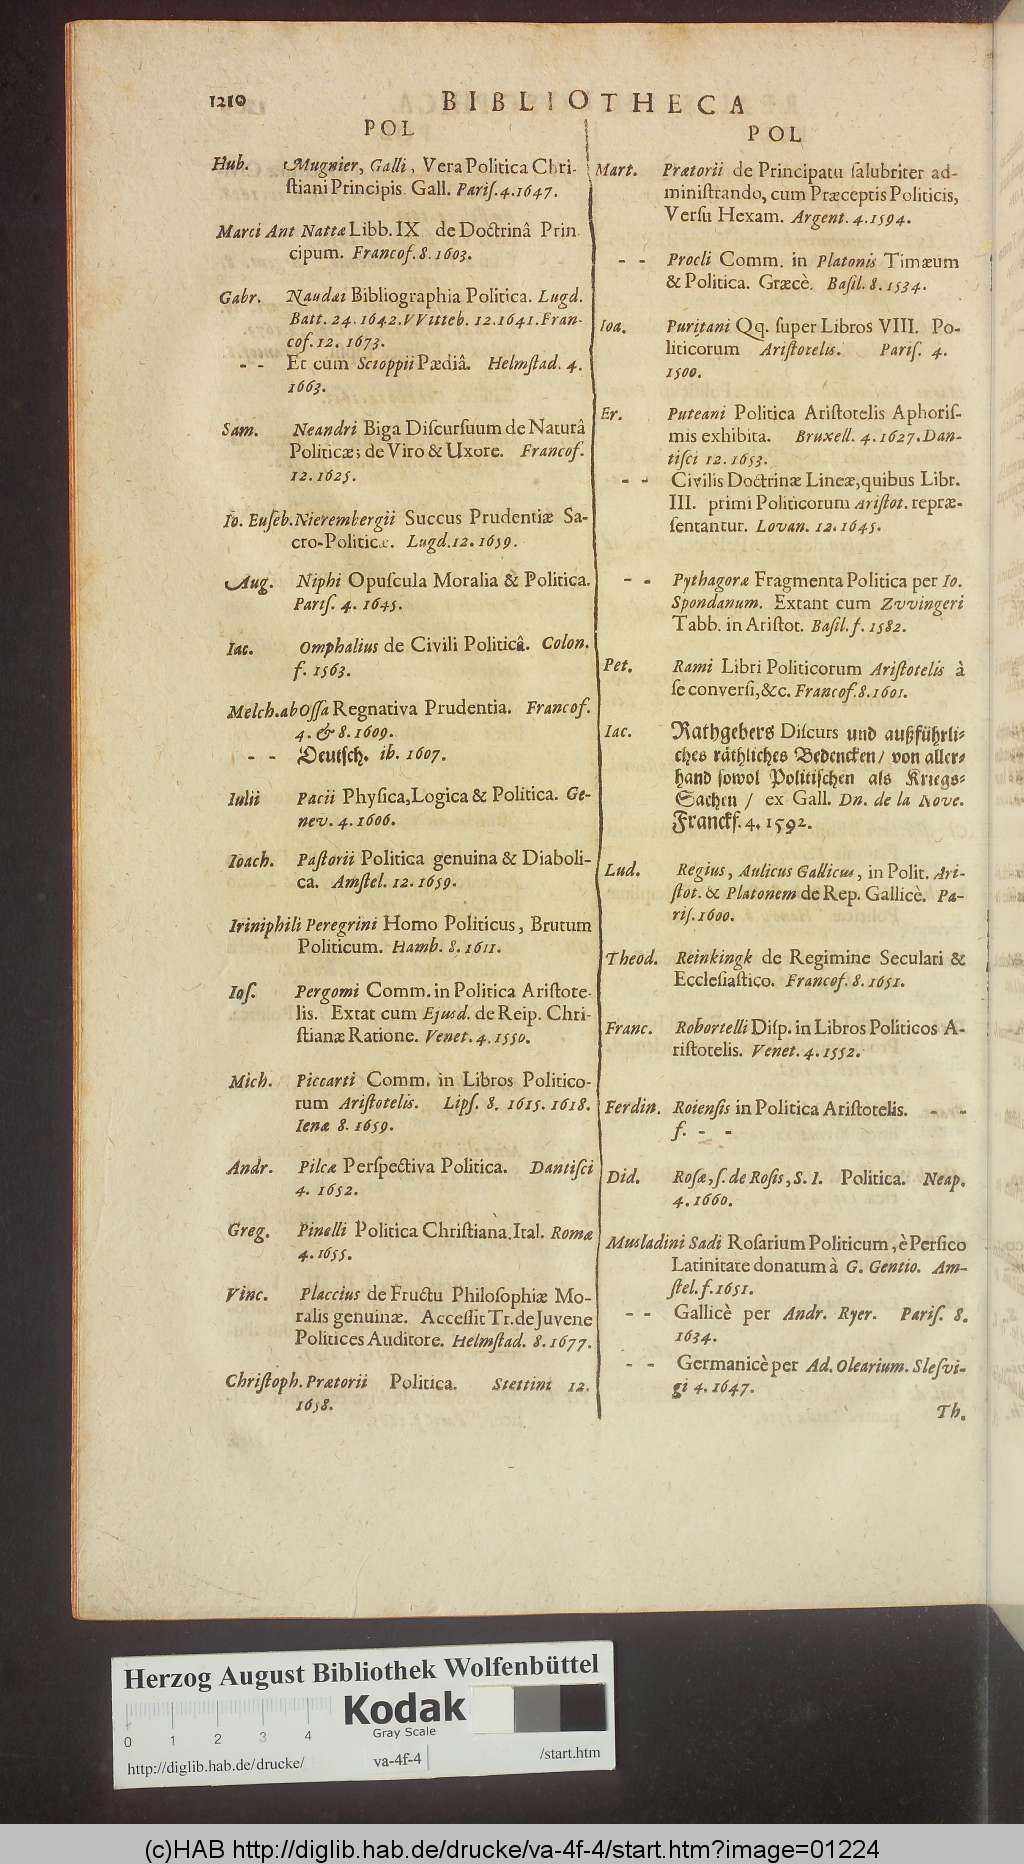 1210
BIBLIOTHECA
POL
Hub. Mugnier, Galli, Vera Politica Chri-
ſtiani Principis. Gall. Pariſ. 4. 1647.
Marci Ant Nattæ Libb. IX de Doctrinâ Prin
cipum. Francof. 8. 1603.
Gabr. Naudæi Bibliographia Politica. Lugd.
Batt. 24. 1642. VVitteb. 12. 1641. Fran-
cof. 12. 1673.
- - Et cum Scioppii Pædiâ. Helmſtad. 4.
1663.
Sam. Neandri Biga Diſcurſuum de Naturâ
Politicæ; de Viro & Uxore. Francof.
12. 1625.
Io. Euſeb. Nierembergii Succus Prudentiæ Sa-
cro-Politicæ. Lugd. 12. 1659.
Aug. Niphi Opuſcula Moralia & Politica.
Pariſ. 4. 1645.
Iac. Omphalius de Civili Politicâ. Colon.
f. 1563.
Melch. ab Oſſa Regnativa Prudentia. Francof.
4. & 8. 1609.
- - Deutſch. ib. 1607.
Iulii Pacii Phyſica, Logica & Politica. Ge-
nev. 4. 1606.
Ioach. Paſtorii Politica genuina & Diaboli-
ca. Amſtel. 12. 1659.
Iriniphili Peregrini Homo Politicus, Brutum
Politicum. Hamb. 8. 1611.
Ioſ. Pergomi Comm. in Politica Ariſtote-
lis. Extat cum Ejusd. de Reip. Chri-
ſtianæ Ratione. Venet. 4. 1550.
Mich. Piccarti Comm. in Libros Politico-
rum Ariſtotelis. Lipſ. 8. 1615. 1618.
Ienæ 8. 1659.
Andr. Pilcæ Perſpectiva Politica. Dantiſci
4. 1652.
Greg. Pinelli Politica Chriſtiana. Ital. Romæ
4. 1655.
Vinc. Placcius de Fructu Philoſophiæ Mo-
ralis genuinæ. Acceſſit Tr. de Juvene
Politices Auditore. Helmſtad. 8. 1677.
Chriſtoph. Prætorii Politica. Stettini 12.
1658.
POL
Mart. Prætorii de Principatu ſalubriter ad-
miniſtrando, cum Præceptis Politicis,
Verſu Hexam. Argent. 4. 1594.
- - Procli Comm. in Platonis Timæum
& Politica. Græcè. Baſil. 8. 1534.
Ioa. Puritani Qq. ſuper Libros VIII. Po-
liticorum Ariſtotelis. Pariſ. 4.
1500.
Er. Puteani Politica Ariſtotelis Aphoriſ-
mis exhibita. Bruxell. 4. 1627. Dan-
tiſci 12. 1653.
- - Civilis Doctrinæ Lineæ, quibus Libr.
III. primi Politicorum Ariſtot. repræ-
ſentantur. Lovan. 12. 1645.
- - Pythagoræ Fragmenta Politica per Io.
Spondanum. Extant cum Zvvingeri
Tabb. in Ariſtot. Baſil. f. 1582.
Pet. Rami Libri Politicorum Ariſtotelis à
ſe converſi, &c. Francof. 8. 1601.
Iac. Rathgebers Diſcurs und außführli-
ches räthliches Bedencken / von aller-
hand ſowol Politiſchen als Kriegs-
Sachen / ex Gall. Dn. de la Nove.
Franckf. 4. 1592.
Lud. Regius, Aulicus Gallicus, in Polit. Ari-
ſtot. & Platonem de Rep. Gallicè. Pa-
riſ. 1600.
Theod. Reinkingk de Regimine Seculari &
Eccleſiaſtico. Francof. 8. 1651.
Franc. Robortelli Diſp. in Libros Politicos A-
riſtotelis. Venet. 4. 1552.
Ferdin. Roienſis in Politica Ariſtotelis. - -
f. - -
Did. Roſæ, ſ. de Roſis, S. I. Politica. Neap.
4. 1660.
Musladini Sadi Roſarium Politicum, è Perſico
Latinitate donatum à G. Gentio. Am-
ſtel. f. 1651.
- - Gallicè per Andr. Ryer. Pariſ. 8.
1634.
- - Germanicè per Ad. Olearium. Sleſvi-
gi 4. 1647.
Th.
Herzog August Bibliothek Wolfenbüttel
Kodak
Gray Scale
0 1 2 3 4
http://diglib.hab.de/drucke/ va-4f-4 /start.htm
(c)HAB http://diglib.hab.de/drucke/va-4f-4/start.htm?image=01224